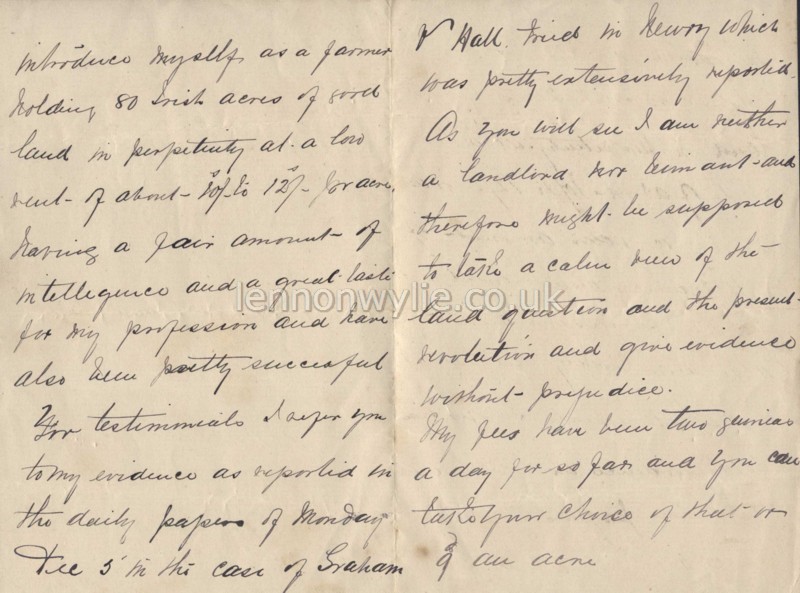 introduce myself as a farmer
holding 80 Irish acres of good
land in perpetinity at a low
rent of about 10/- to 12/- per acre,
having a fair amount of
intellegence and a great taste
for my profession and have
also been pretty succesful
For testimonials I refer you
to my evidence as reported in
the daily papers of Monday
Dec 5 in the case of Graham
V Hall tried in Newry which
was pretty extensively reported.
As you will see I am neither
a landlord nor tennant and
therefore might be supposed
to take a calm view of the
land question and the present
revolution and give evidence
without prejudice.
My fees have been two guineas
a day for so far and you can
take your choice of that or
an acre
lennonwylie.co.uk